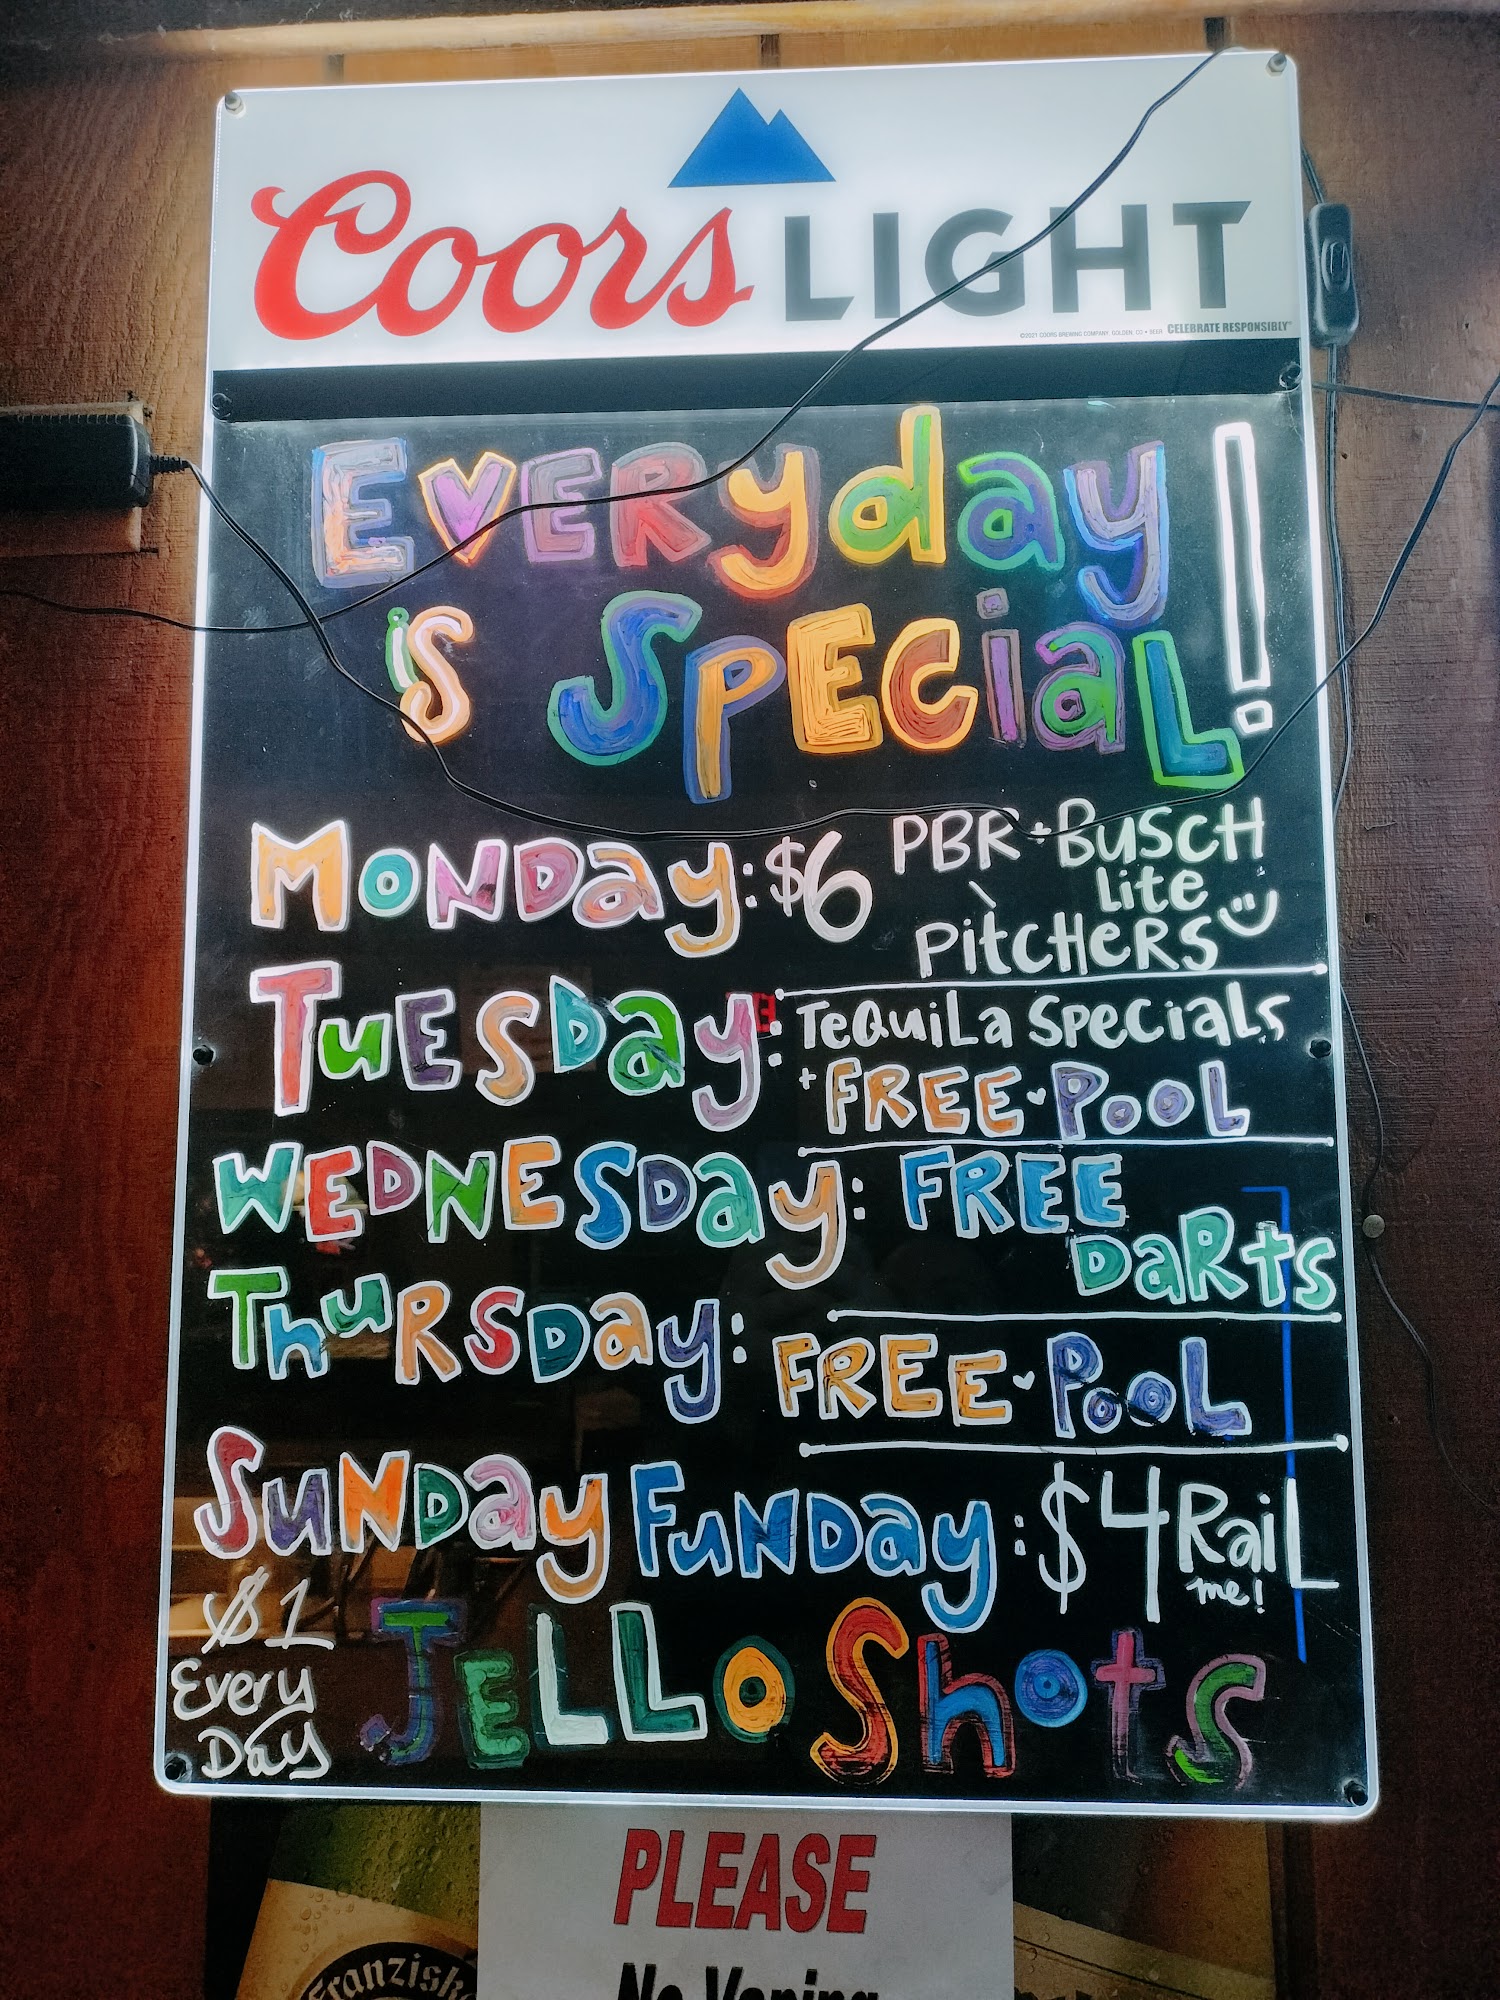 Coors LIGHT
©2021 COORS BREWING COMPANY, GOLDEN, CO • BEER CELEBRATE RESPONSIBLY®
EVERyday!
iS SPECiaL
MONDay: $6 PBR + BUSCH
Lite
PitCHeRS
TuESDay: TeQuiLa SPeCiaLS
+ FREE · POOL
WEDNESDay: FREE
DaRtS
ThuRSDay: FREE · POOL
SuNDay FuNDay: $4 RaiL
me!
$1
Every
Day
JELLO ShotS
PLEASE
No Vaping
Franzisk